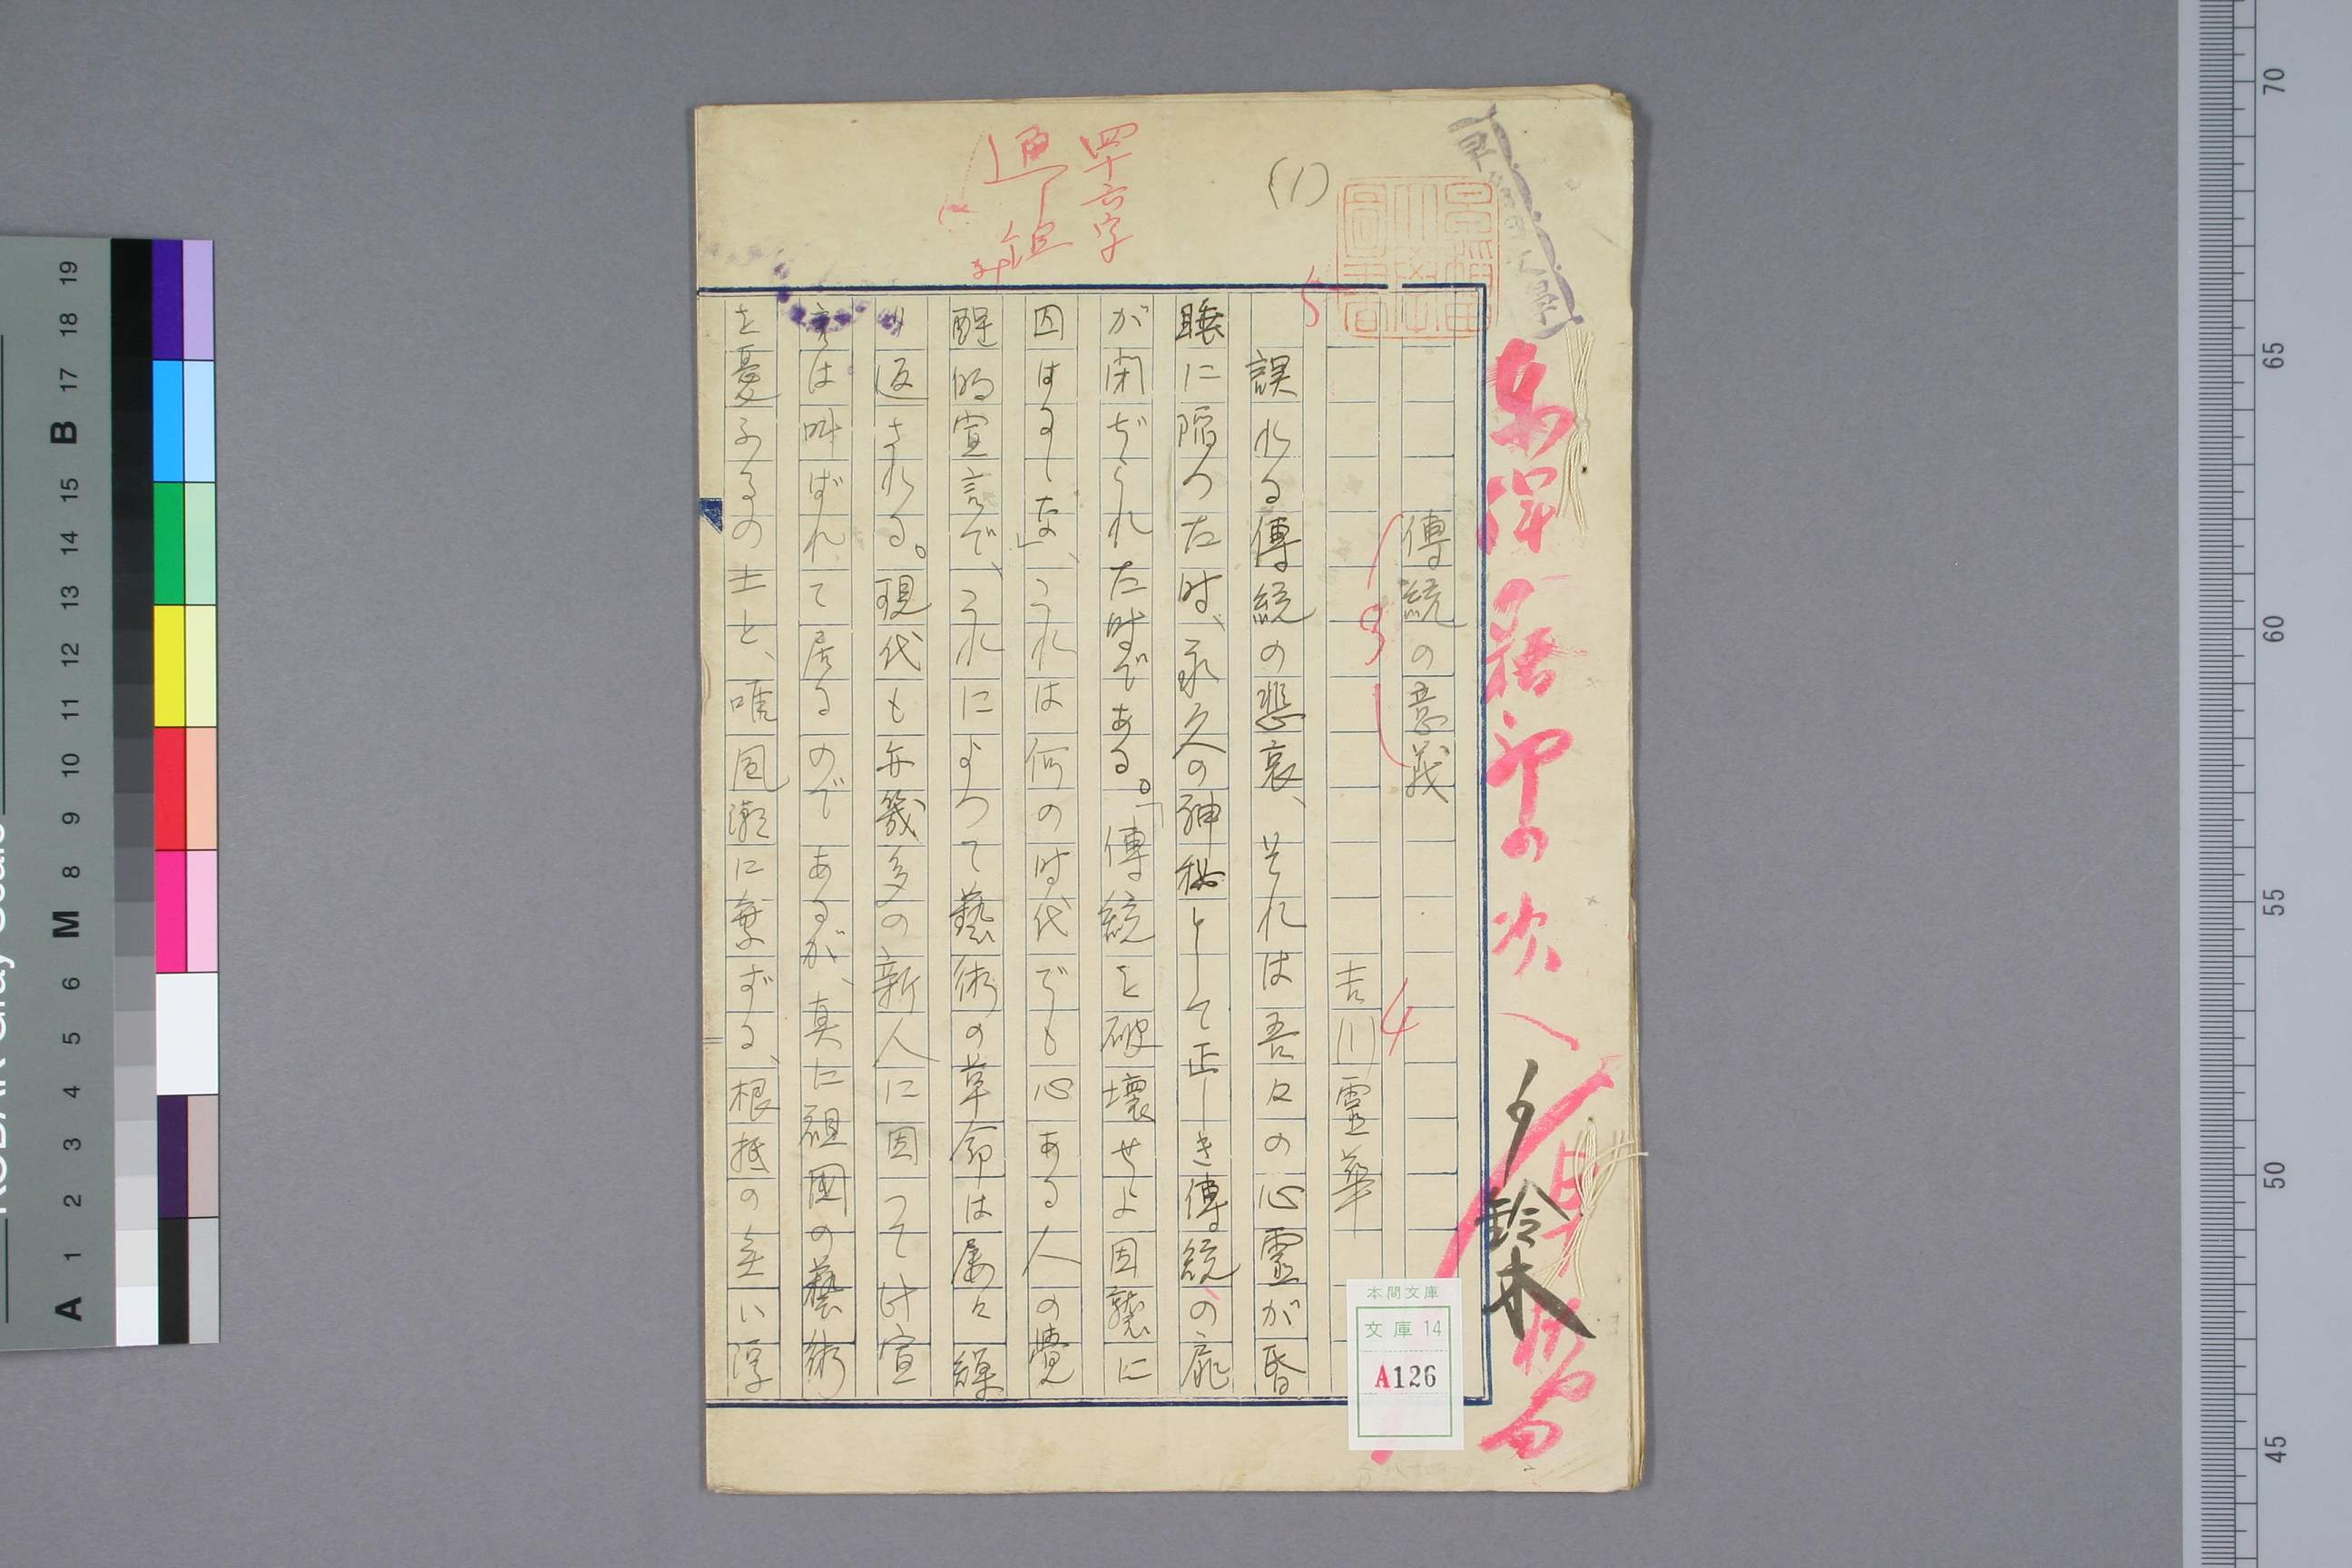 (1)
四十六字
傳統の意義
吉川靈華
誤れる傳統の悲哀、それは吾々の心靈が昏
睡に陷つた時、永久の神秘として正しき傳統の扉
が閉ぢられた時である。「傳統を破壞せよ因襲に
囚はるゝな」、これは何の時代でも心ある人の覺
醒的宣言で、これによつて藝術の革命は屢々繰
り返される。現代も亦幾多の新人に因つて此宣
言は叫ばれて居るのであるが、真に祖國の藝術
を憂ふるの士と、唯風潮に棄ずる、根抵の無い浮
の次へ
鈴木
本間文庫
文庫 14
A126
5
9
4
KODAK Gray Scale
A 1 2 3 4 5 6 M 8 9 10 11 12 13 14 15 B 17 18 19
70
65
60
55
50
45